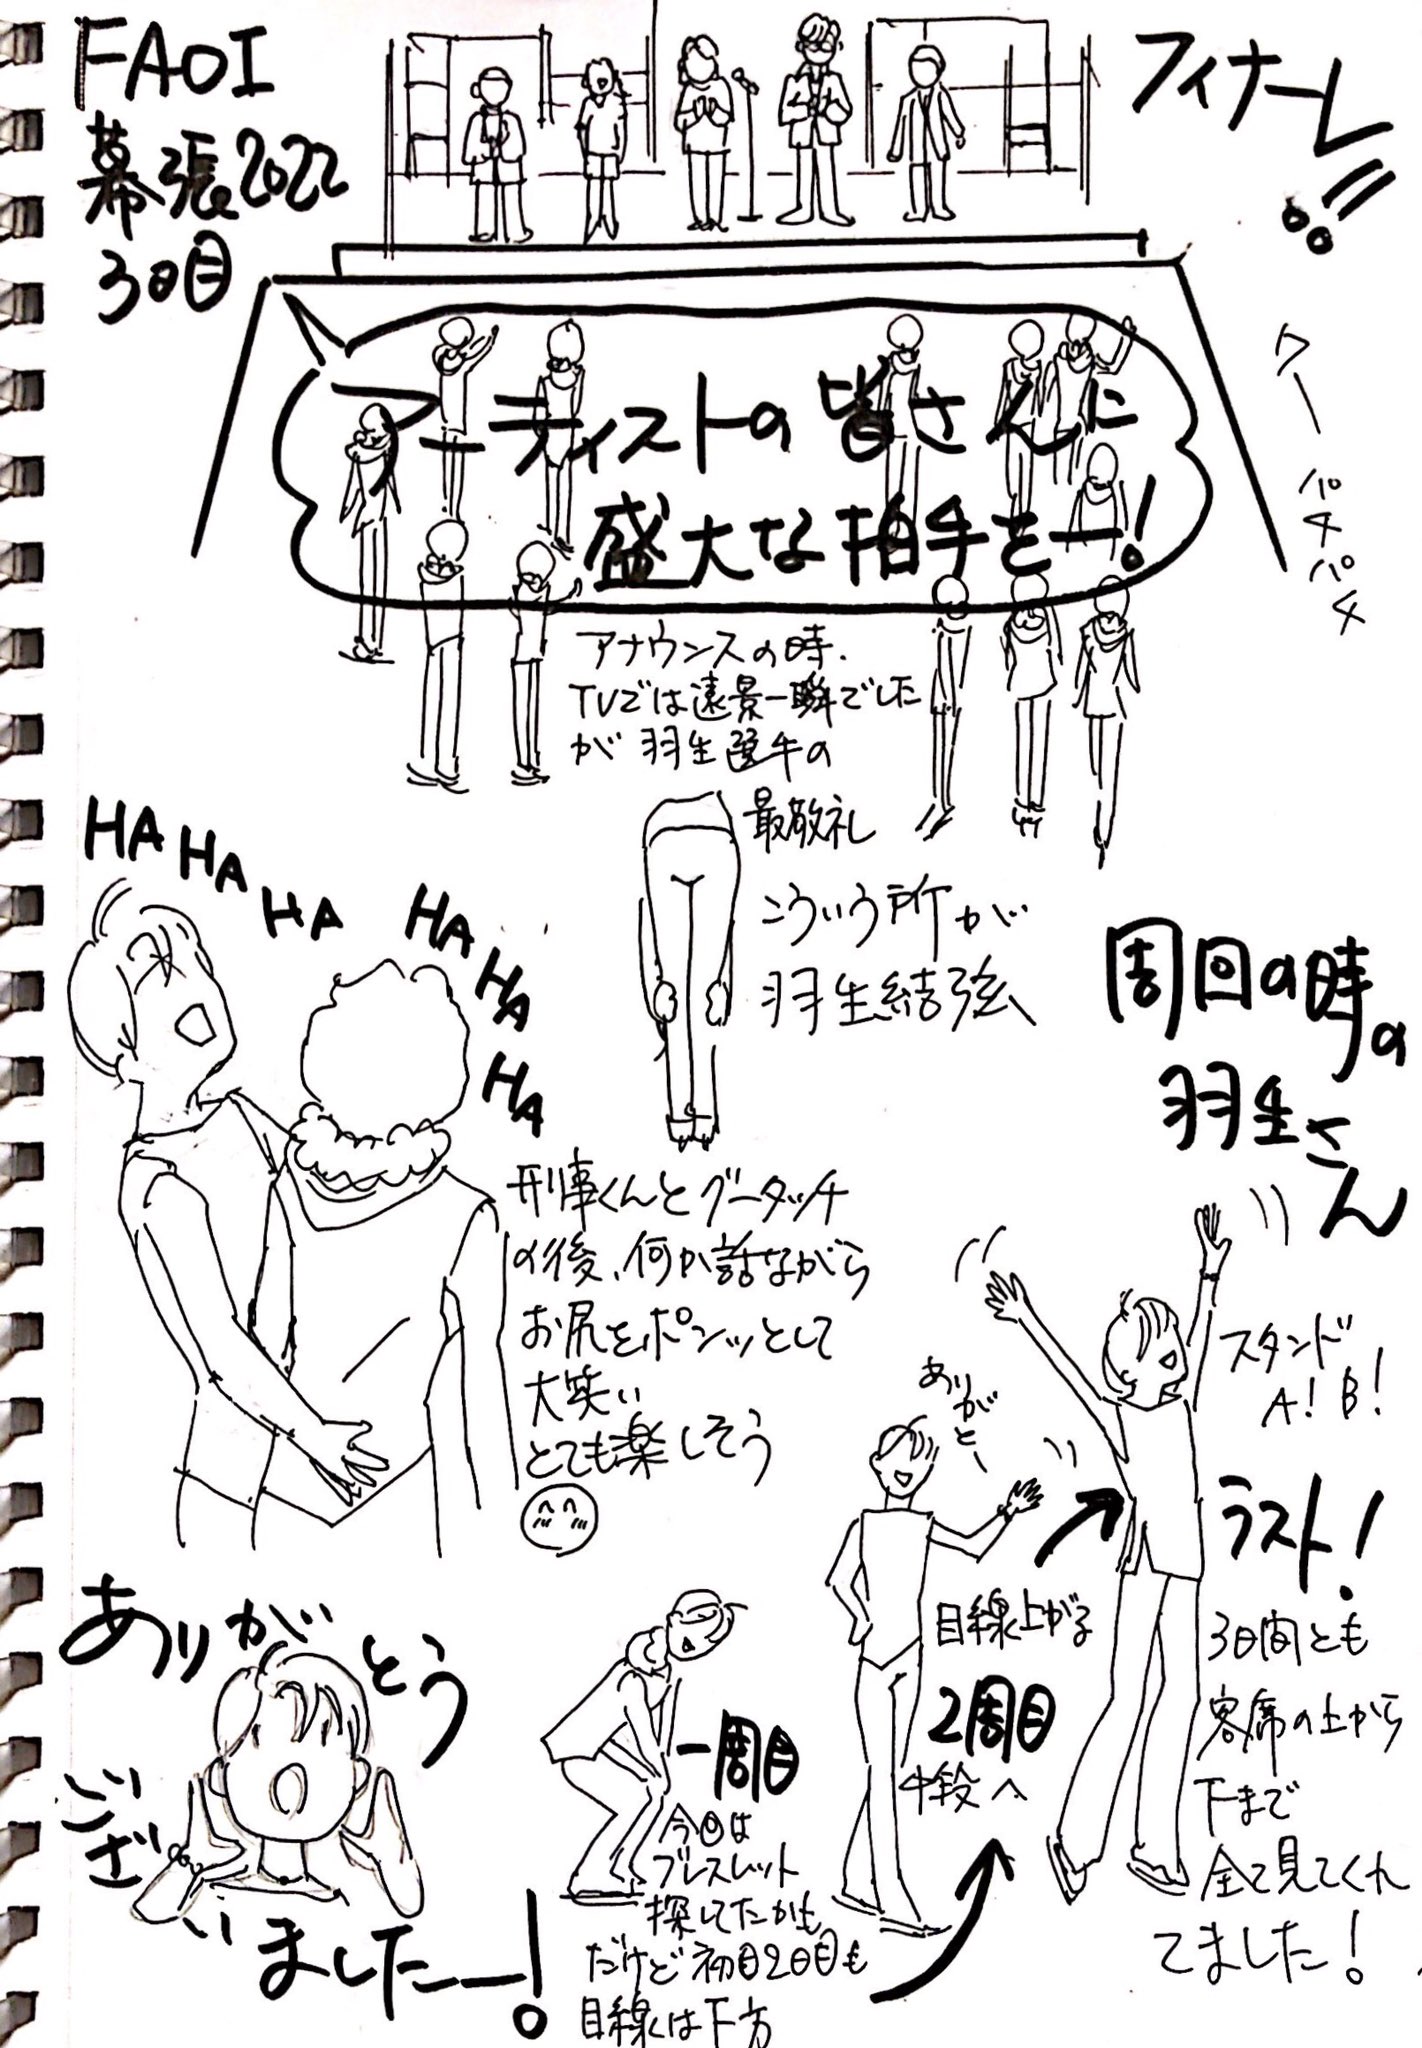 FAOI
幕張2022
3日目
フィナーレ!!
アーティストの皆さんに
盛大な拍手をー!
ワー
パチパチ
アナウンスの時、
TVでは遠景一瞬でした
が羽生選手の
最敬礼
こういう所が
羽生結弦
HA HA HA HA HA HA
刑事くんとグータッチ
の後、何か話ながら
お尻をポンッとして
大笑い
とても楽しそう
周回の時の
羽生さん
スタンド
A! B!
ラスト!
3日間とも
客席の上から
下まで
全て見てくれ
てました!
ありがとー
目線上がる
2周目
中段へ
一周目
今回は
ブレスレット
探してたかも
だけど初日2日目も
目線は下方
ありがとう
ござ
いましたー!